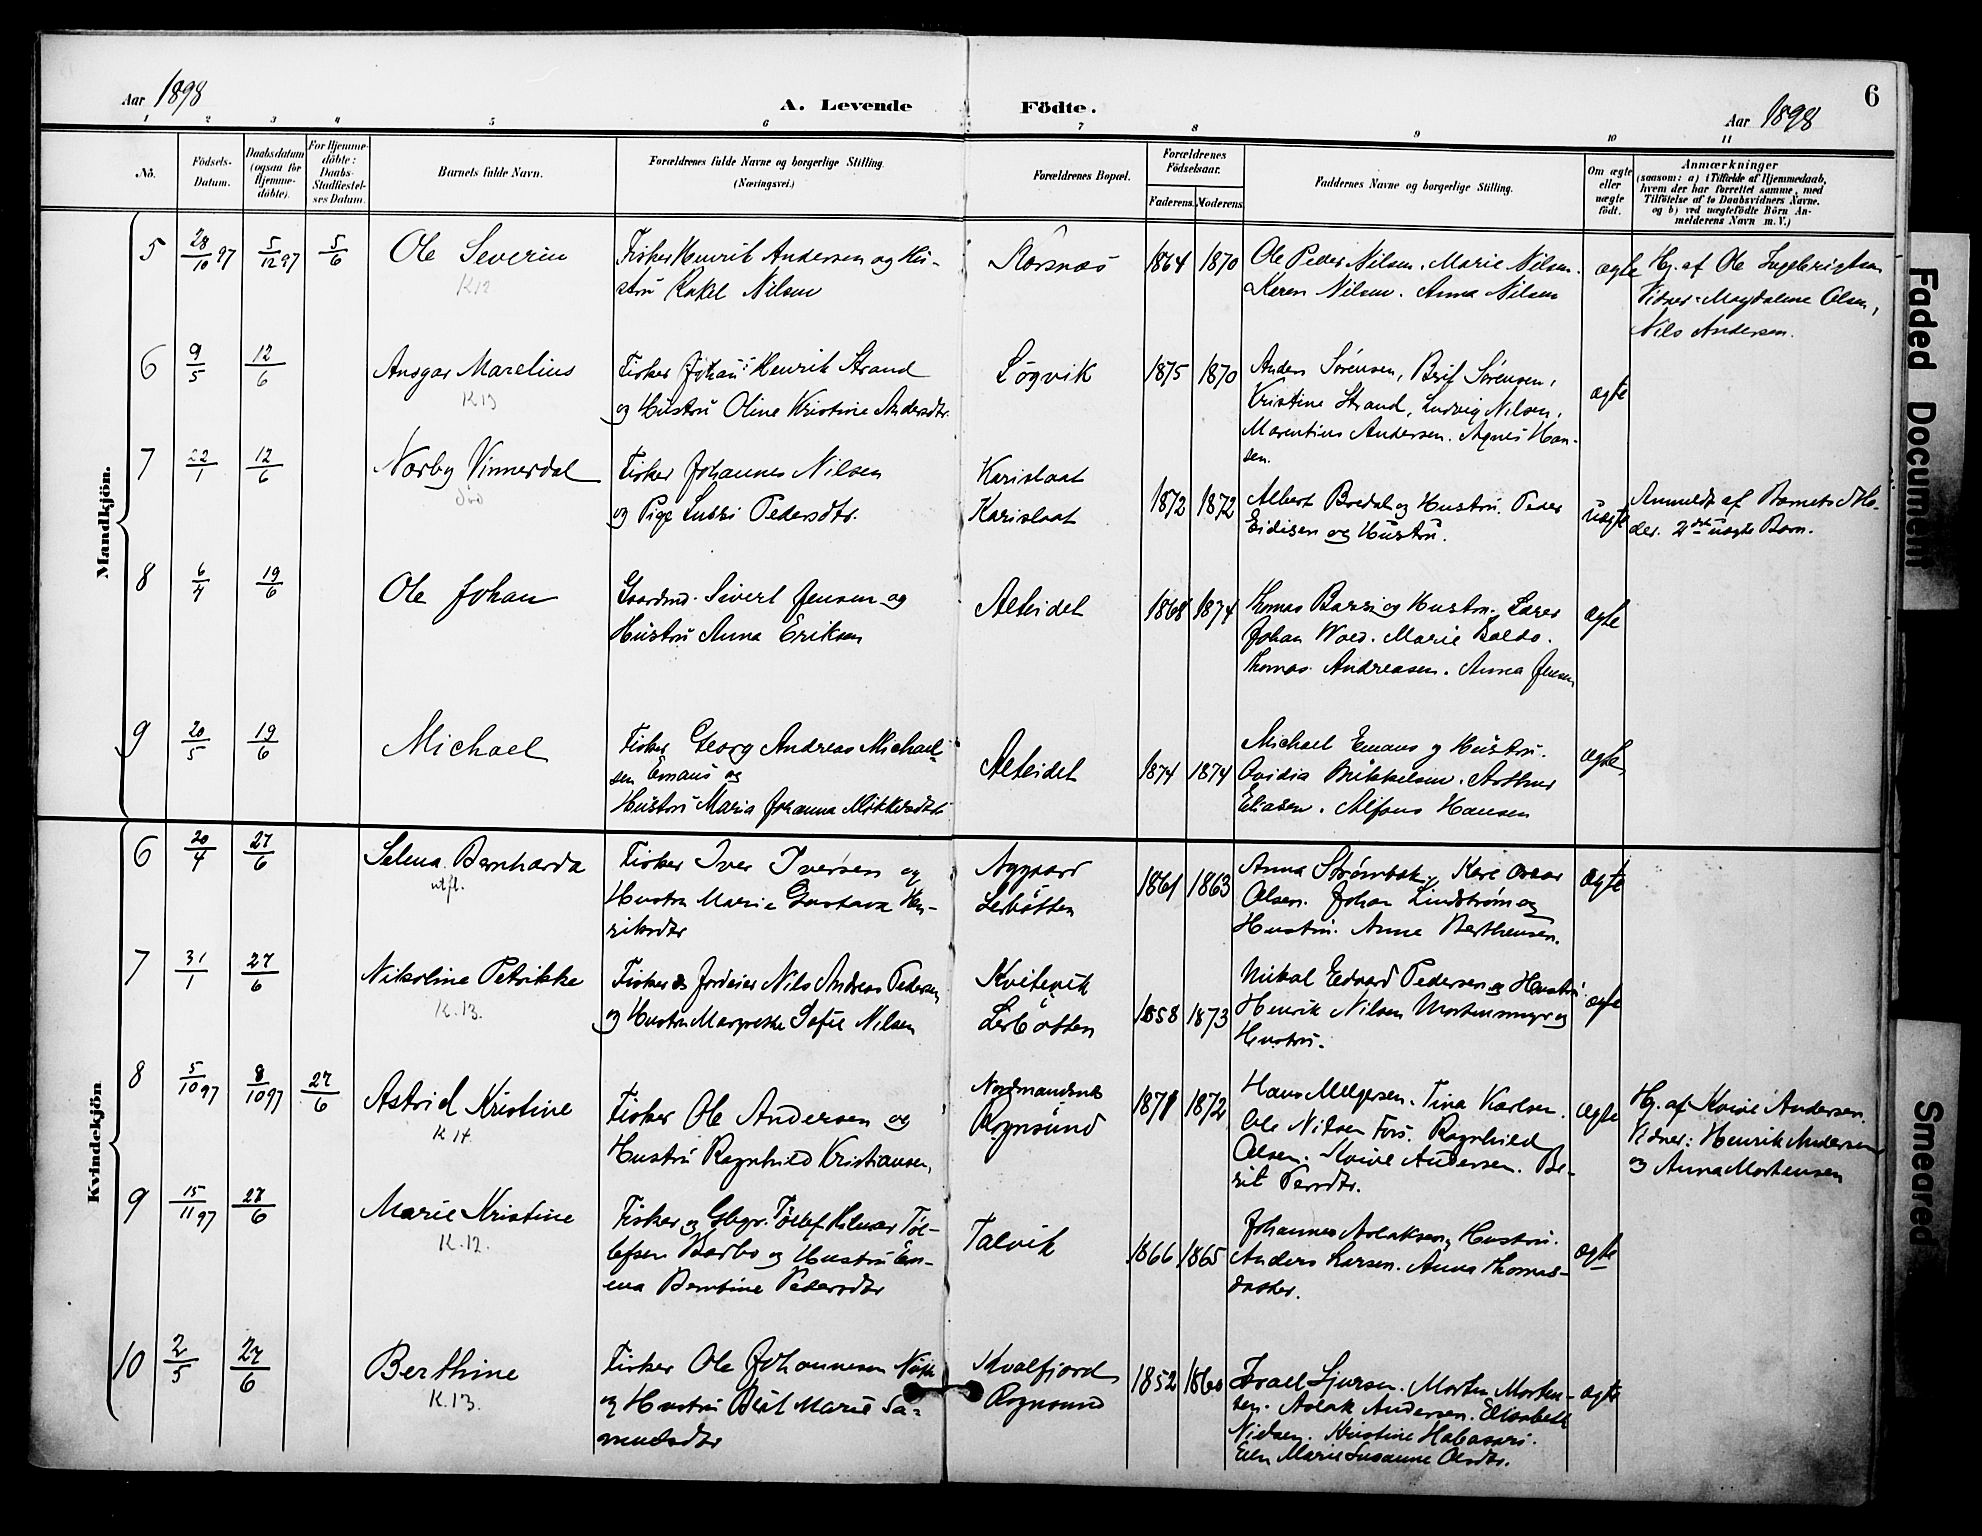 Aar 1898
A. Levende Födte.
Aar 1898
6
1 2 3 4 5 6 7 8 9 10 11
No.
Födsels-Datum.
Daabsdatum (ogsaa for Hjemme-döbte).
For Hjemme-döbte: Daabs-Stadfæstel-ses Datum.
Barnets fulde Navn.
Forældrenes fulde Navne og borgerlige Stilling. (Næringsvei.)
Forældrenes Bopæl.
Forældrenes Födselsaar.
Faderens. Moderens.
Faddernes Navne og borgerlige Stilling.
Om ægte eller uægte födt.
Anmærkninger
(saasom: a) i Tilfælde af Hjemmedaab, hvem der har forrettet samme, med Tilföielse af to Daabsvidners Navne. og b) ved uægtefödte Börn An-melderens Navn m. V.)
Mandkjön.
5 28/10 97 5/12 97 5/6 Ole Severin
K12
Fisker Henrik Andersen og Hu-
stru Rakel Nilsen
Korsnæs
1864 1870
Ole Peder Nilsen. Marie Nilsen.
Karen Nilsen. Anna Nilsen
ægte
Hj. af Ole Ingebrigtsen
Vidner: Magdalene Olsen,
Nils Andersen.
6 9/5 12/6 Ansgar Marelius
K13
Fisker Johan Henrik Strand
og Hustru Oline Kristine Andersdtr.
Løgvik
1875 1870
Anders Sørensen, Berit Sørensen,
Kristine Strand, Ludvig Nilsen,
Marentius Andersen. Agnes Han-
sen.
ægte
7 22/1 12/6 Norby Vinnerdal
Fisker Johannes Nilsen
og Pige Lussi Pedersdtr.
Karislaat
Karislaat
1872 1872
Albert Bredal og Hustru. Peder
Eidisen og Hustru.
uægte
Anmeldt af Barnets Mo-
der. 2det uægte Barn.
8 6/4 19/6 Ole Johan
Gaardmd. Sivert Jensen og
Hustru Anna Eriksen
Alteidet
1868 1874
Thomas Barsi og Hustru. Lares
Johan Woed. Marie Boldo.
Thomas Andreasen. Anna Jensen
ægte
9 20/5 19/6 Michael
Fisker Georg Andreas Michael-
sen Emaus og
Hustru Maria Johanna Mikkelsdtr
Alteidet
1874 1874
Michael Emaus og Hustru.
Ovidia Mikkelsen. Arthur
Eliasen. Alfons Hansen
ægte
Kvindekjön
6 20/4 27/6 Selma Bernharda
utfl.
Fisker Iver Iversen og
Hustru Marie Gustava Hen-
riksdtr
Nygaard
Lerbotten
1861 1863
Anna Strømbæk, Karl Oscar
Olsen. Johan Lindstrøm og
Hustru. Anne Berthensen.
ægte
7 31/1 27/6 Nikoline Petrikke
K.13.
Fisker & Jordeier Nils Andreas Pedersen
og Hustru Margrethe Sofie Nilsen
Kvitevik
Lerbotten
1858 1873
Mikal Edvard Pedersen og Hustru
Henrik Nilsen Mortensmyr og
Hustru.
ægte
8 5/10 97 8/10 97 27/6 Astrid Kristine
K14.
Fisker Ole Andersen og
Hustru Ragnhild Kristiansen,
Nordmandsnes
Rognsund
1871 1872
Hans Melgersen. Tina Karlsen.
Ole Nilsen Fors. Ragnhild
Olsen. Kvive Andersen. Be-
rit Persdtr.
ægte
Hj. af Kvive Andersen.
Vidner: Henrik Andersen
og Anna Mortensen
9 15/11 97 27/6 Marie Kristine
K.12.
Fisker og Gbgr. Tollef Hilmar Tol-
lefsen Barbo og Hustru Em-
ma Berntine Pedersdtr
Talvik
1866 1865
Johannes Aslaksen, Hustru.
Anders Larsen. Anna Thomas-
datter.
ægte
10 2/5 27/6 Berthine
K.13.
Fisker Ole Johannesen
og Hustru Berit Marie Sa-
muelsdtr
Kvalfjord
Rognsund
1852 1860
Israel Sjursen. Morten Morten-
sen. Aslak Andersen. Elisabeth
Nielsen. Kristine Habasari.
Elen Marie Susanne Olsdtr.
ægte
Faded Document
Smeared